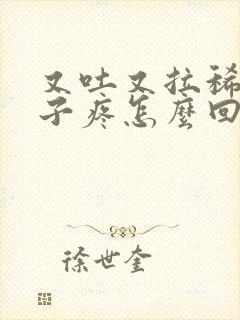 又吐又拉稀
子疼怎麼回
徐世奎